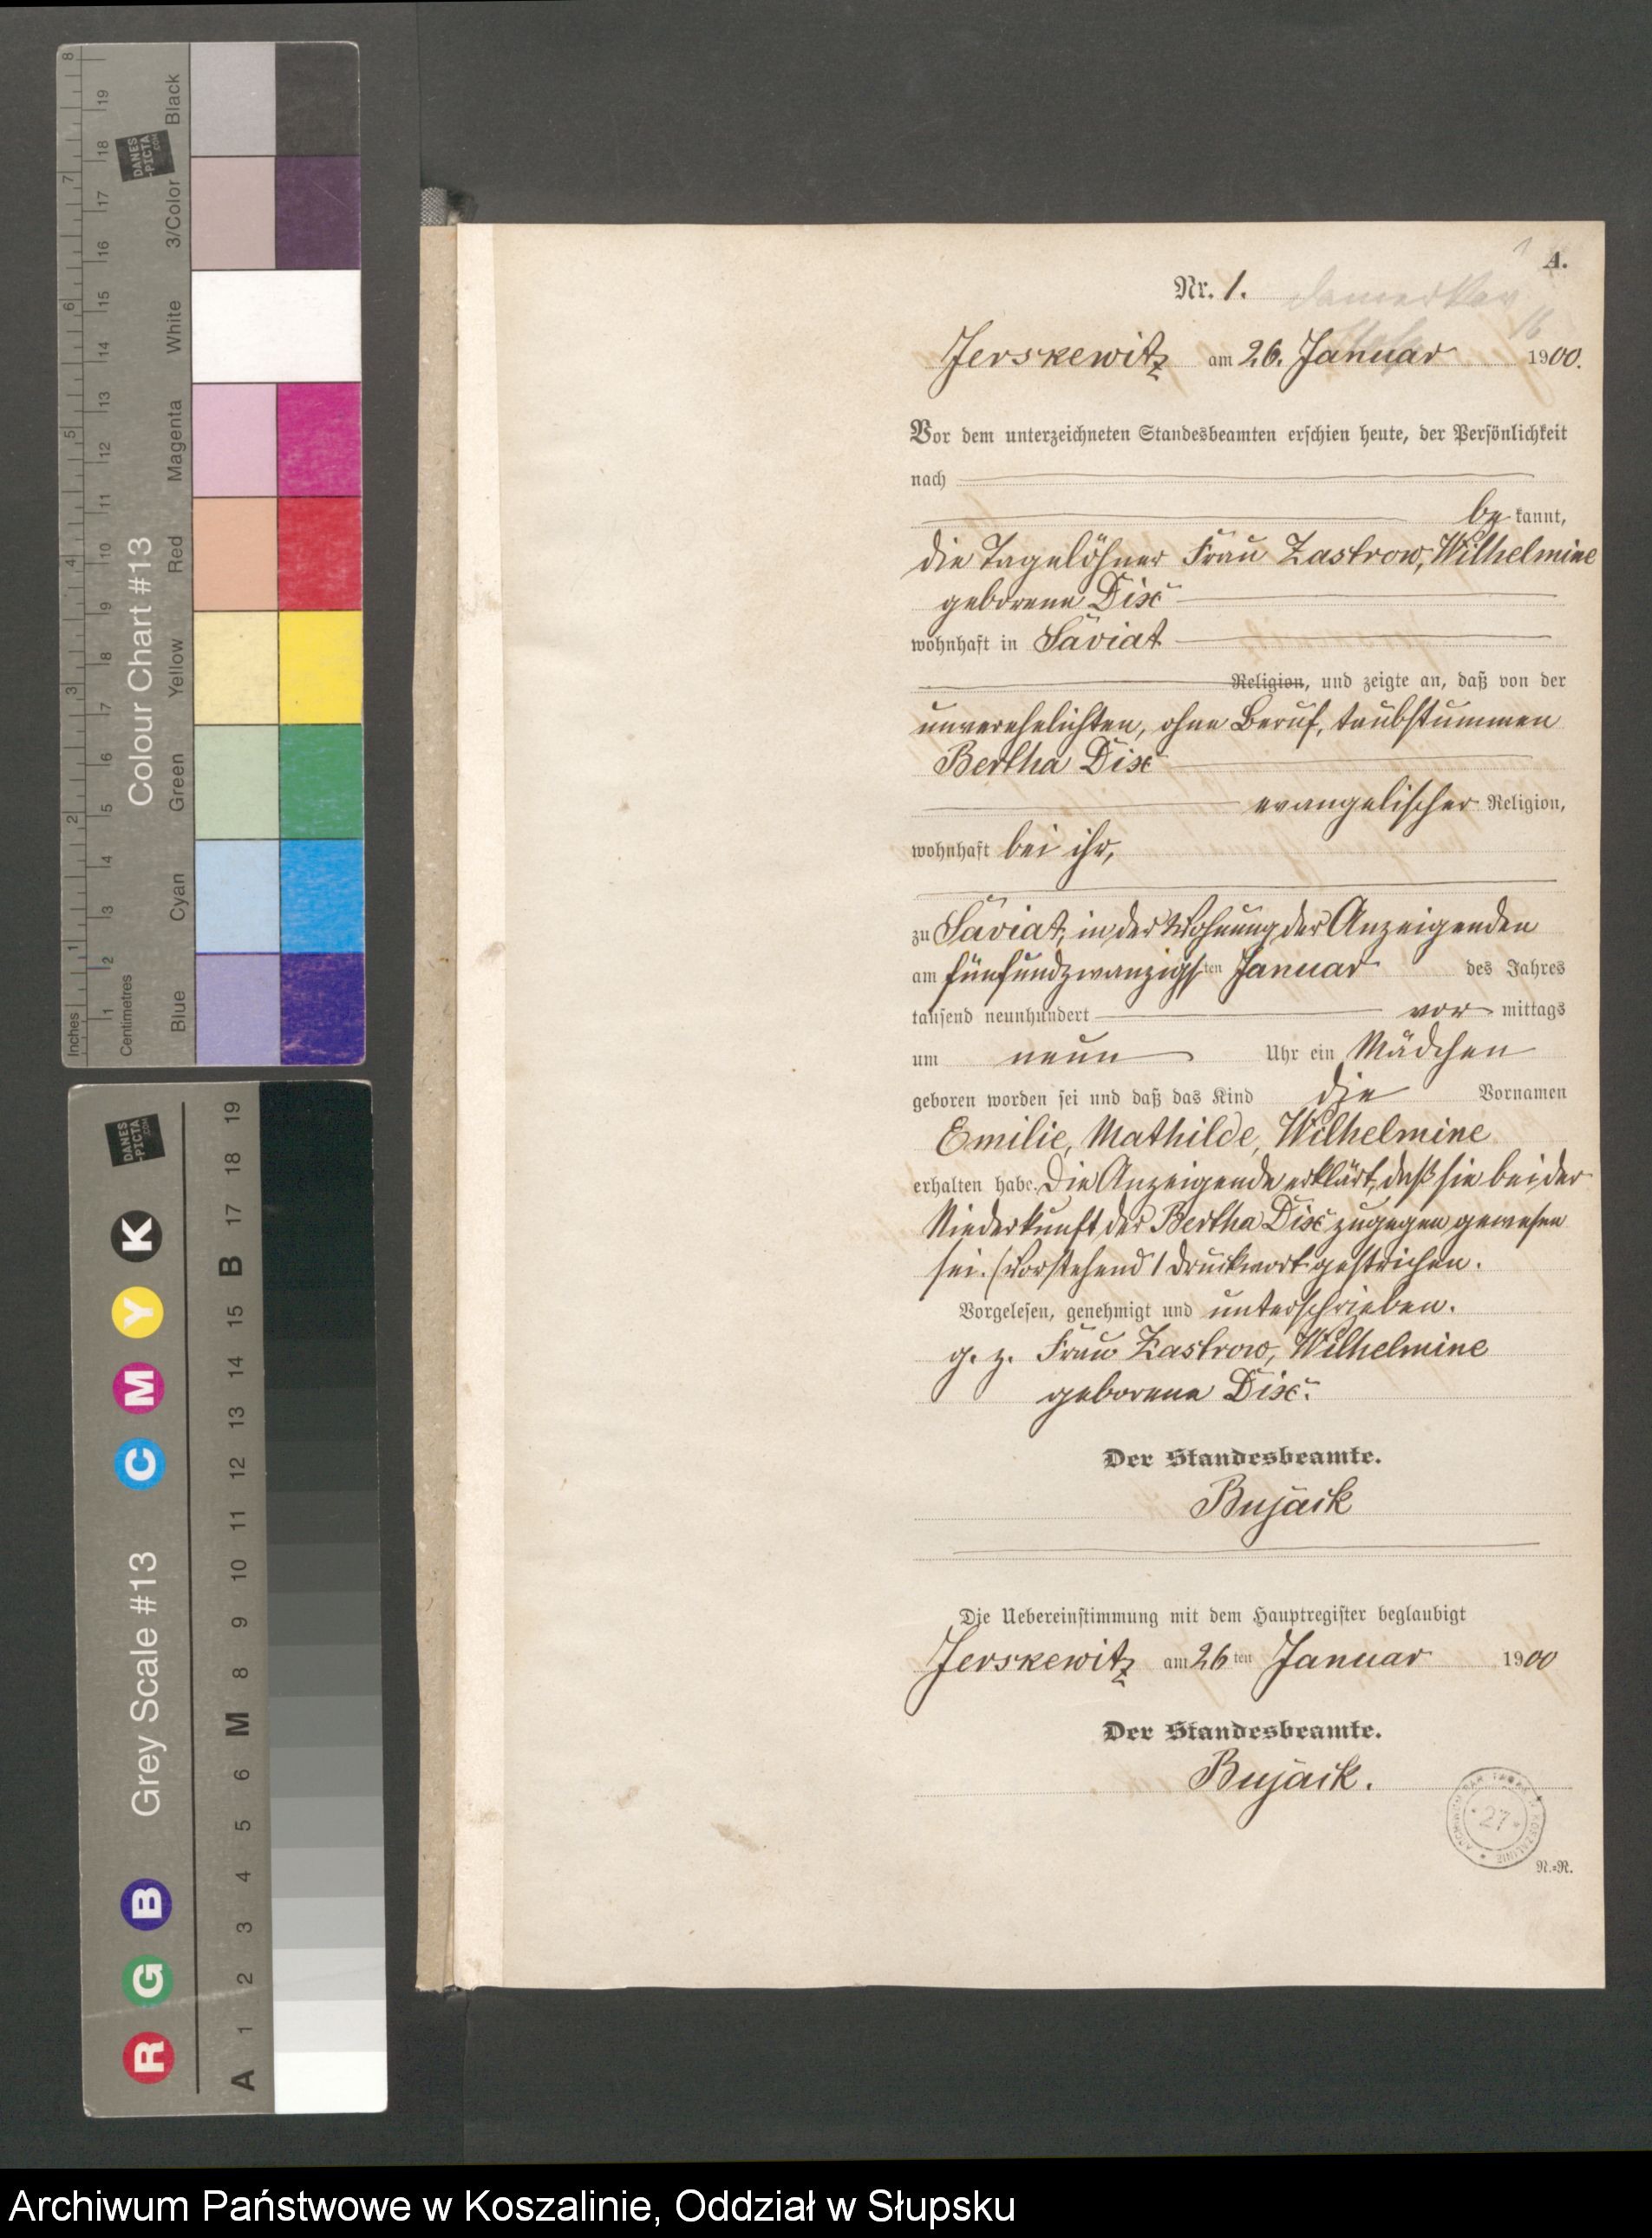 A.
Nr. 1.
Jerskewitz am 26. Januar 1900.
Vor dem unterzeichneten Standesbeamten erschien heute, der Persönlichkeit
nach
be kannt,
die Tagelöhner Frau Zastrow, Wilhelmine
geborene
wohnhaft in Saviat
Religion, und zeigte an, daß von der
unverehelichten, ohne Beruf, taubstummen
Bertha
evangelischer Religion,
wohnhaft bei ihr,
zu Saviat, in der Wohnung der Anzeigenden
am fünfundzwanzigsten Januar des Jahres
tausend neunhundert vor mittags
um neun Uhr ein Mädchen
geboren worden sei und daß das Kind die Vornamen
Emilie, Mathilde, Wilhelmine
erhalten habe. Die Anzeigende erklärt, daß sie bei der
Niederkunft der Bertha zugegen gewesen
sei. (Vorstehend 1 Druckwort gestrichen.
Vorgelesen, genehmigt und unterschrieben.
g. z. Frau Zastrow, Wilhelmine
geborene
Der Standesbeamte.
Bujack
Die Uebereinstimmung mit dem Hauptregister beglaubigt
Jerskewitz am 26ten Januar 1900
Der Standesbeamte.
Bujack.
27
N.=R.
Colour Chart #13
Black
3/Color
White
Magenta
Red
Yellow
Green
Cyan
Blue
Inches 1 2 3 4 5 6 7 8
Centimetres 1 2 3 4 5 6 7 8 9 10 11 12 13 14 15 16 17 18 19
DANES
-PICTA
.COM
Grey Scale #13
R G B C M Y K
A 1 2 3 4 5 6 M 8 9 10 11 12 13 14 15 B 17 18 19
DANES
-PICTA
.COM
Archiwum Państwowe w Koszalinie, Oddział w Słupsku